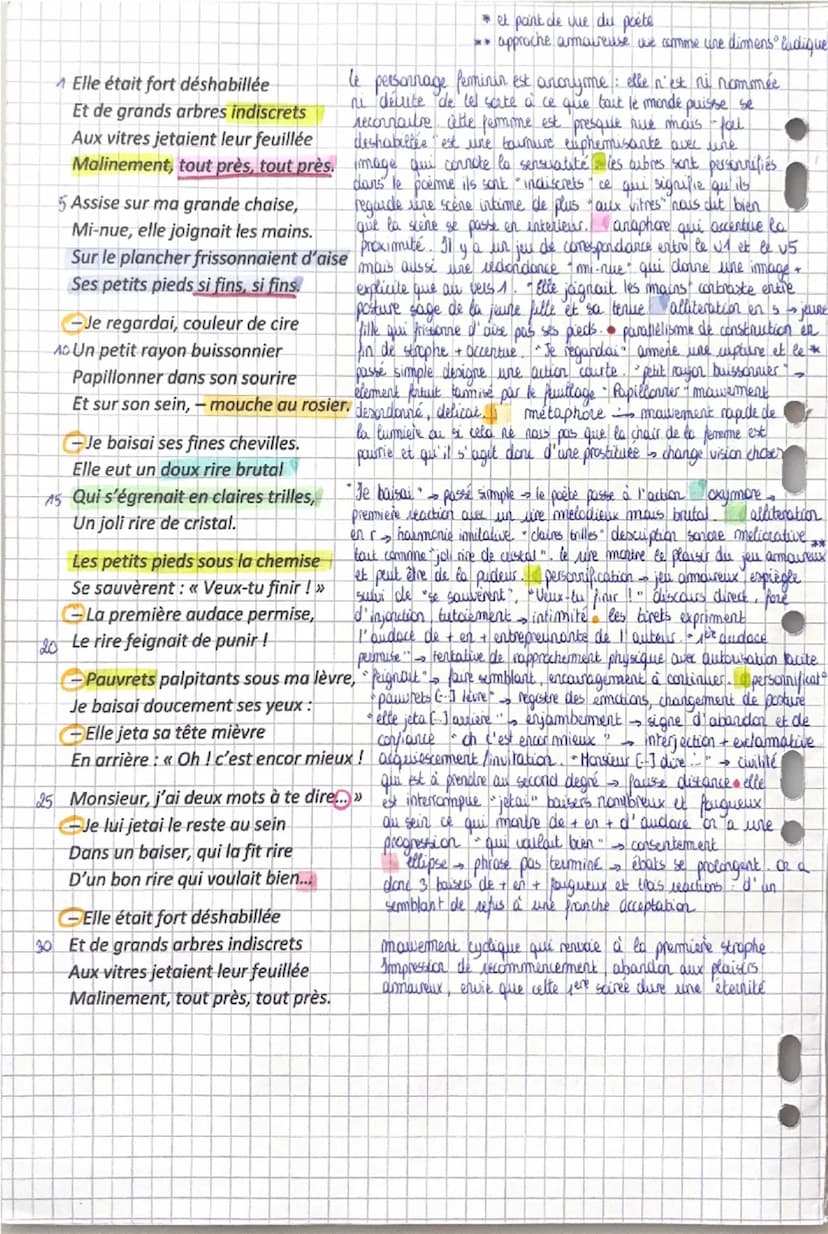 * et point de vue du poète
** approche amoureuse vue comme une dimens° ludique
1 Elle était fort déshabillée
Et de grands arbres indiscrets
Aux vitres jetaient leur feuillée
Malinement, tout près, tout près.
5 Assise sur ma grande chaise,
Mi-nue, elle joignait les mains.
Sur le plancher frissonnaient d'aise
Ses petits pieds si fins, si fins.
– Je regardai, couleur de cire
10 Un petit rayon buissonnier
Papillonner dans son sourire
Et sur son sein, – mouche au rosier.
– Je baisai ses fines chevilles.
Elle eut un doux rire brutal
15 Qui s'égrenait en claires trilles,
Un joli rire de cristal.
Les petits pieds sous la chemise
Se sauvèrent : « Veux-tu finir ! »
– La première audace permise,
20 Le rire feignait de punir !
– Pauvrets palpitants sous ma lèvre,
Je baisai doucement ses yeux :
– Elle jeta sa tête mièvre
En arrière : « Oh ! c'est encor mieux !
25 Monsieur, j'ai deux mots à te dire... »
– Je lui jetai le reste au sein
Dans un baiser, qui la fit rire
D'un bon rire qui voulait bien...
– Elle était fort déshabillée
30 Et de grands arbres indiscrets
Aux vitres jetaient leur feuillée
Malinement, tout près, tout près.
Le personnage feminin est anonyme : elle n'est ni nommée
ni décrite de tel sorte à ce que tout le monde puisse se
reconnaitre. Cette femme est presque nue mais "fort
deshabillée" est une tournure euphémisante avec une
image qui connote la sensualité les arbres sont personnifiés
dans le poème ils sont "indiscrets" ce qui signifie qu'ils
regarde une scène intime de plus "aux vitres" nous dit bien
que la scène se passe en interieur. anaphore qui accentue la
proximité. Il y a un jeu de correspondance entre le v1 et le v5
mais aussi une redondance "mi-nue" qui donne une image +
explicite que au vers 1. "Elle joignait les mains" contraste entre
posture sage de la jeune fille et sa tenue alliteration en s → jeune
fille qui frissonne d'aise pas ses pieds. parallélisme de construction en
fin de strophe + accentue. "Je regardai" amène une rupture et le *
passé simple designe une action courte. "petit rayon buissonnier" →
element fortuit tamisé par le feuillage "Papillonner" mouvement
desordonné, delicat. métaphore → mouvement rapide de
la lumiere ou si cela ne nous pas que la chair de la femme est
pourrie et qu'il s'agit donc d'une prostituée → change vision choses
"Je baisai" → passé simple → le poète passe à l'action oxymore →
première reaction avec un rire mélodieux mais brutal. alliteration
en r → harmonie imitative. "claires trilles" description sonore méliorative **
tout comme "joli rire de cristal". le rire montre le plaisir du jeu amoureux
et peut être de la pudeur. personnification → jeu amoureux, espiègle
suivi de "se sauvèrent", "Veux-tu finir !" discours direct,
d'injonction, tutoiement → intimité. les tirets expriment
l'audace de + en + entreprenante de l'auteur. "1ère audace
permise" → tentative de rapprochement physique avec autorisation tacite
"feignait" → faire semblant, encouragement à continuer. personnificat°
"pauvrets [...] lèvre" → registre des émotions, changement de posture
"elle jeta [...] arrière" → enjambement → signe d'abandon et de
confiance "oh c'est encor mieux" → interjection + exclamative
acquiescement / invitation. "Monsieur [...] dire..." → civilité
qui est à prendre au second degré → fausse distance elle
est interrompue "jetai" baisers nombreux et fougueux
au sein ce qui montre de + en + d'audace on a une
progression "qui voulait bien" → consentement
ellipse → phrase pas terminé → ébats se prolongent. on a
donc 3 baisers de + en + fougueux et trois reactions : d'un
semblant de refus à une franche acceptation
mouvement cyclique qui renvoie à la première strophe
Impression de recommencement, abandon aux plaisirs
amoureux, envie que cette 1ère soirée dure une éternité